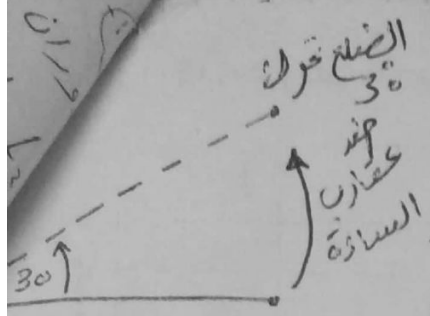 الضلع تحرك
30°
ضد
عقارب
الساعة
30
دوران